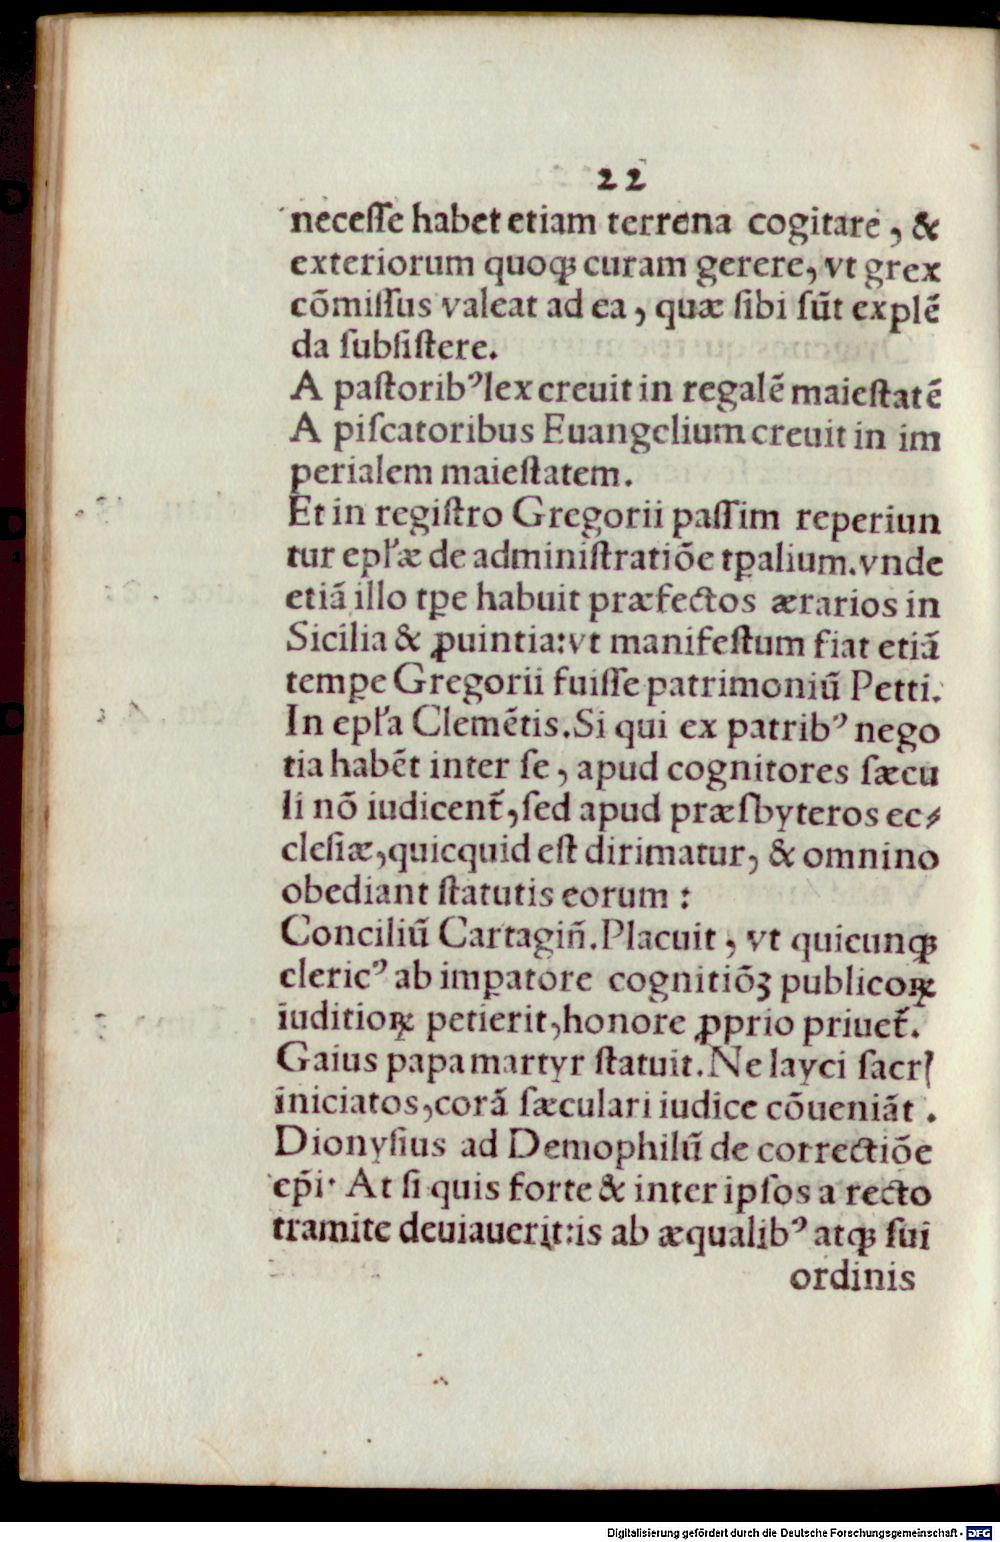 22
neceſſe habet etiam terrena cogitare, &
exteriorum quoqꝫ curam gerere, vt grex
cōmiſſus valeat ad ea, quæ ſibi ſūt explē
da ſubſiſtere.
A paſtoribꝰ lex creuit in regalē maieſtatē
A piſcatoribus Euangelium creuit in im
perialem maieſtatem.
Et in regiſtro Gregorii paſſim reperiun
tur epl̓æ de adminiſtratiōe tꝑalium. vnde
etiā illo tꝑe habuit præfectos ærarios in
Sicilia & ꝓuintia: vt manifeſtum fiat etiā
temꝑe Gregorii fuiſſe patrimoniū Petti.
In epl̓a Clemētis. Si qui ex patribꝰ nego
tia habēt inter ſe, apud cognitores ſæcu
li nō iudicent̄, ſed apud præſbyteros ec⸗
cleſiæ, quicquid eſt dirimatur, & omnino
obediant ſtatutis eorum:
Conciliū Cartagin̄. Placuit, vt quicunqꝫ
clericꝰ ab imꝑatore cognitiōꝫ publicoꝝ
iuditioꝝ petierit, honore ꝓprio priuet̄.
Gaius papa martyr ſtatuit. Ne layci ſacrꝭ
iniciatos, corā ſæculari iudice cōueniāt.
Dionyſius ad Demophilū de correctiōe
ep̄i. At ſi quis forte & inter ipſos a recto
tramite deuiauerit: is ab æqualibꝰ atqꝫ ſui
ordinis
Digitalisierung gefördert durch die Deutsche Forschungsgemeinschaft - DFG